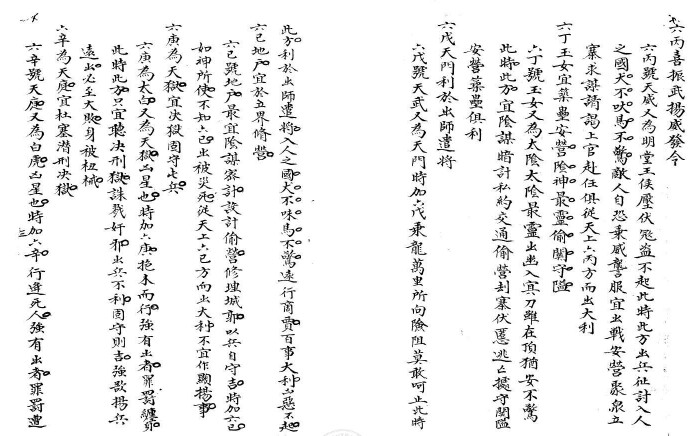 六丙喜振武揚威發令
六丙號天威又為明堂王侯壓伏冤盜不起此時此方出兵征討入人
之國犬不吠馬不驚敵人自恐乘威讋服宜出戰安營聚眾立
寨求謀請謁上官赴任俱從天上六丙方而出大利
六丁玉女宜藥壘安營陰神最靈偷關守隘
六丁號玉女又為太陰太陰最靈出幽入冥刀雖在頂猶安不驚
此時此方宜陰謀暗計私約交通偷營刦寨伏匿逃亡守關隘
安營藥壘俱利
六戊天門利於出師遣將
六戊號天武又為天門時加六戊乘龍萬里所向險阻莫敢呵止此時
此方利於出師遣將入人之國犬不吠馬不驚遠行商賈百事大利六惡不起
六己地戶宜於立界脩營
六己號地戶最宜陰謀密計設計偷營修理城郭以兵自守吉時加六己
如神所使不知六己出被災死從天上六己方向出大利不宜作顯揚事
六庚為天獄宜決獄固守七兵
六庚為太白又為天獄凶星也時加六庚抱木而行強有出者罪罰纏身
此時此方只宜聽決刑獄誅戮奸邪出兵不利固守則吉強欲揚兵
遠出必至大敗身被杻械
六辛為天庭宜杜塞潛刑決獄
六辛號天庭又為白虎凶星也時加六辛行逢死人強有出者罪罰遭